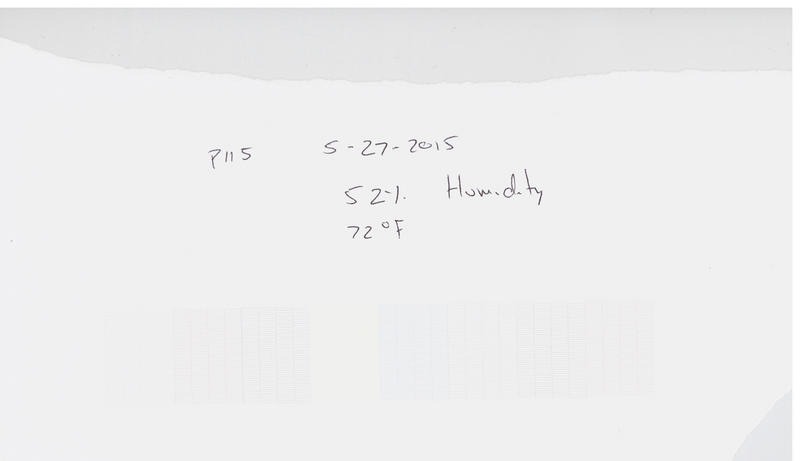 P115 5-27-2015
52% Humidity
72°F